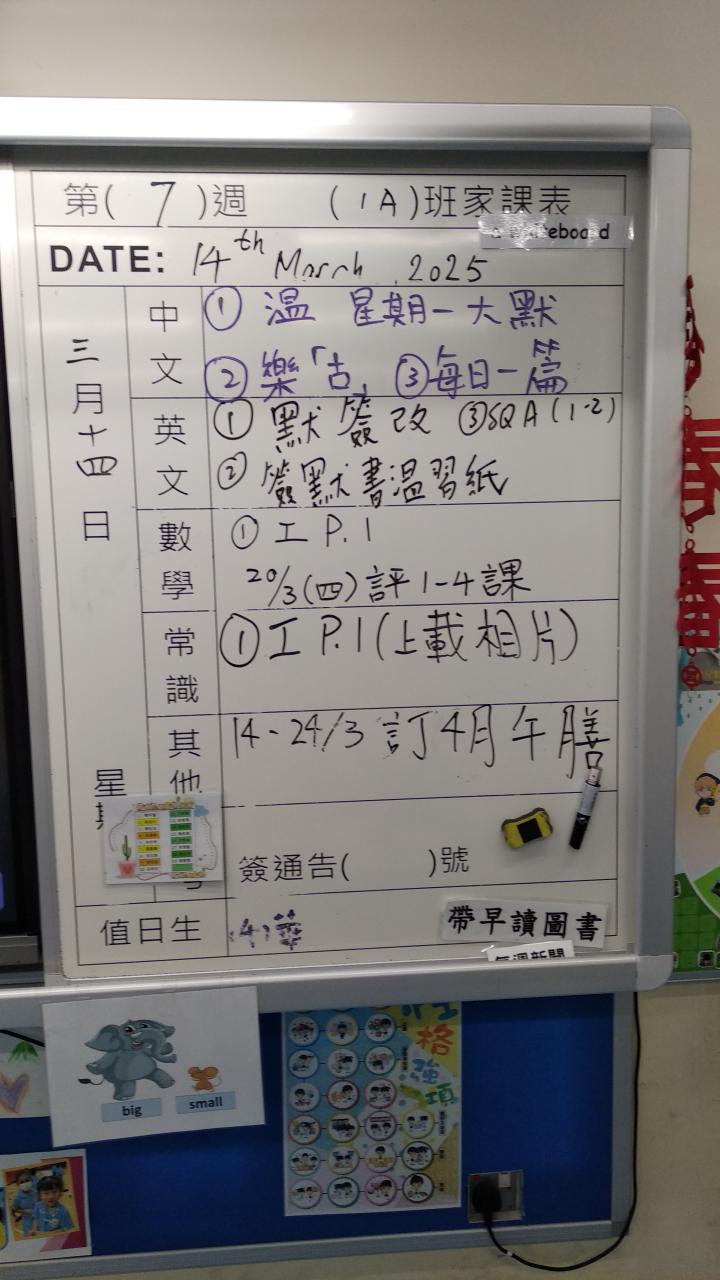 第( 7 )週 (1A)班家課表
whiteboard
DATE: 14th March 2025
三月十四日
星期
中文
① 溫 星期一大默
② 樂「古」 ③每日一篇
英文
① 默簽改 ③SQA(1-2)
② 簽默書溫習紙
數學
① 工 P.1
20/3(四)評1-4課
常識
① 工 P.1(上載相片)
其他
14-24/3 訂4月午膳
簽通告( )號
值日生
帶早讀圖書
每週新聞
big
small
性格強項